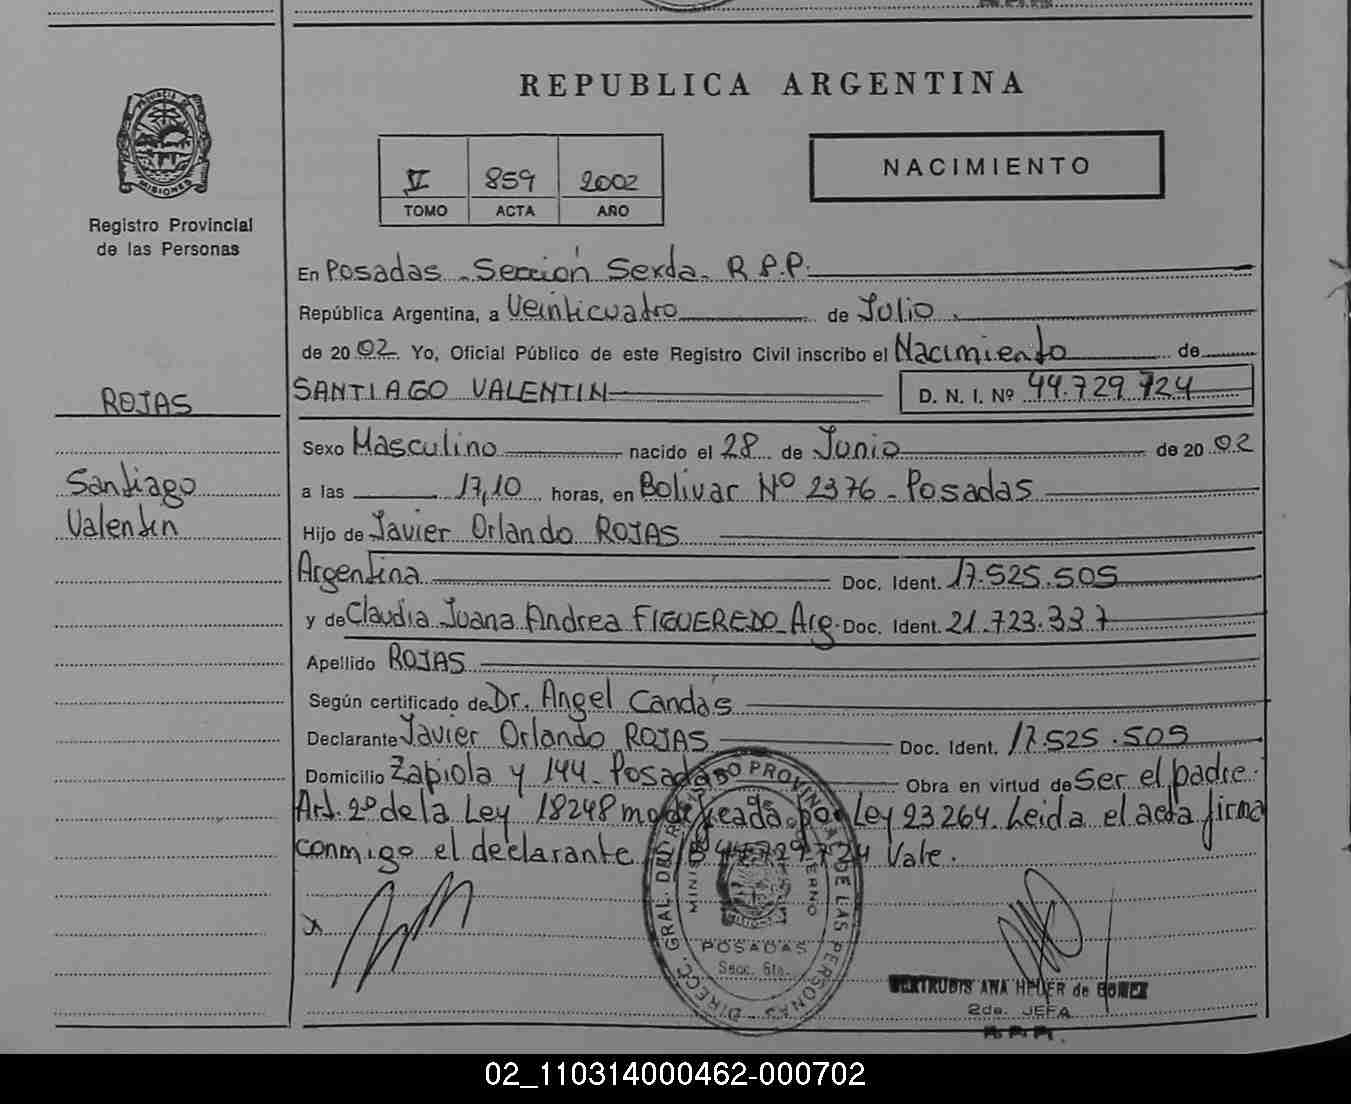 REPUBLICA ARGENTINA
PROVINCIA DE
MISIONES
Registro Provincial
de las Personas
V 859 2002
TOMO ACTA AÑO
NACIMIENTO
En Posadas - Sección Sexta - R.P.P.
República Argentina, a Veinticuatro de Julio
de 2002. Yo, Oficial Público de este Registro Civil inscribo el Nacimiento de
ROJAS
SANTIAGO VALENTIN D. N. I. Nº 44.729.724
Sexo Masculino nacido el 28 de Junio de 2002
Santiago
a las 17,10 horas, en Bolivar Nº 2376 - Posadas
Valentin
Hijo de Javier Orlando ROJAS
Argentina Doc. Ident. 17.525.505
y de Claudia Juana Andrea FIGUEREDO - Arg. Doc. Ident. 21.723.337
Apellido ROJAS
Según certificado de Dr. Angel Candás
Declarante Javier Orlando ROJAS Doc. Ident. 17.525.505
Domicilio Zapiola y 144 - Posadas Obra en virtud de Ser el padre.
Art. 2º de la Ley 18248 modificada por Ley 23264. Leida el acta firma
conmigo el declarante. 44.729.724 Vale.
DIRECC. GRAL. DEL REGISTRO PROVINCIAL DE LAS PERSONAS
POSADAS
Secc. 6ta.
GERTRUDIS ANA HELER de GOMEZ
2da. JEFA
R.P.P.
02_110314000462-000702